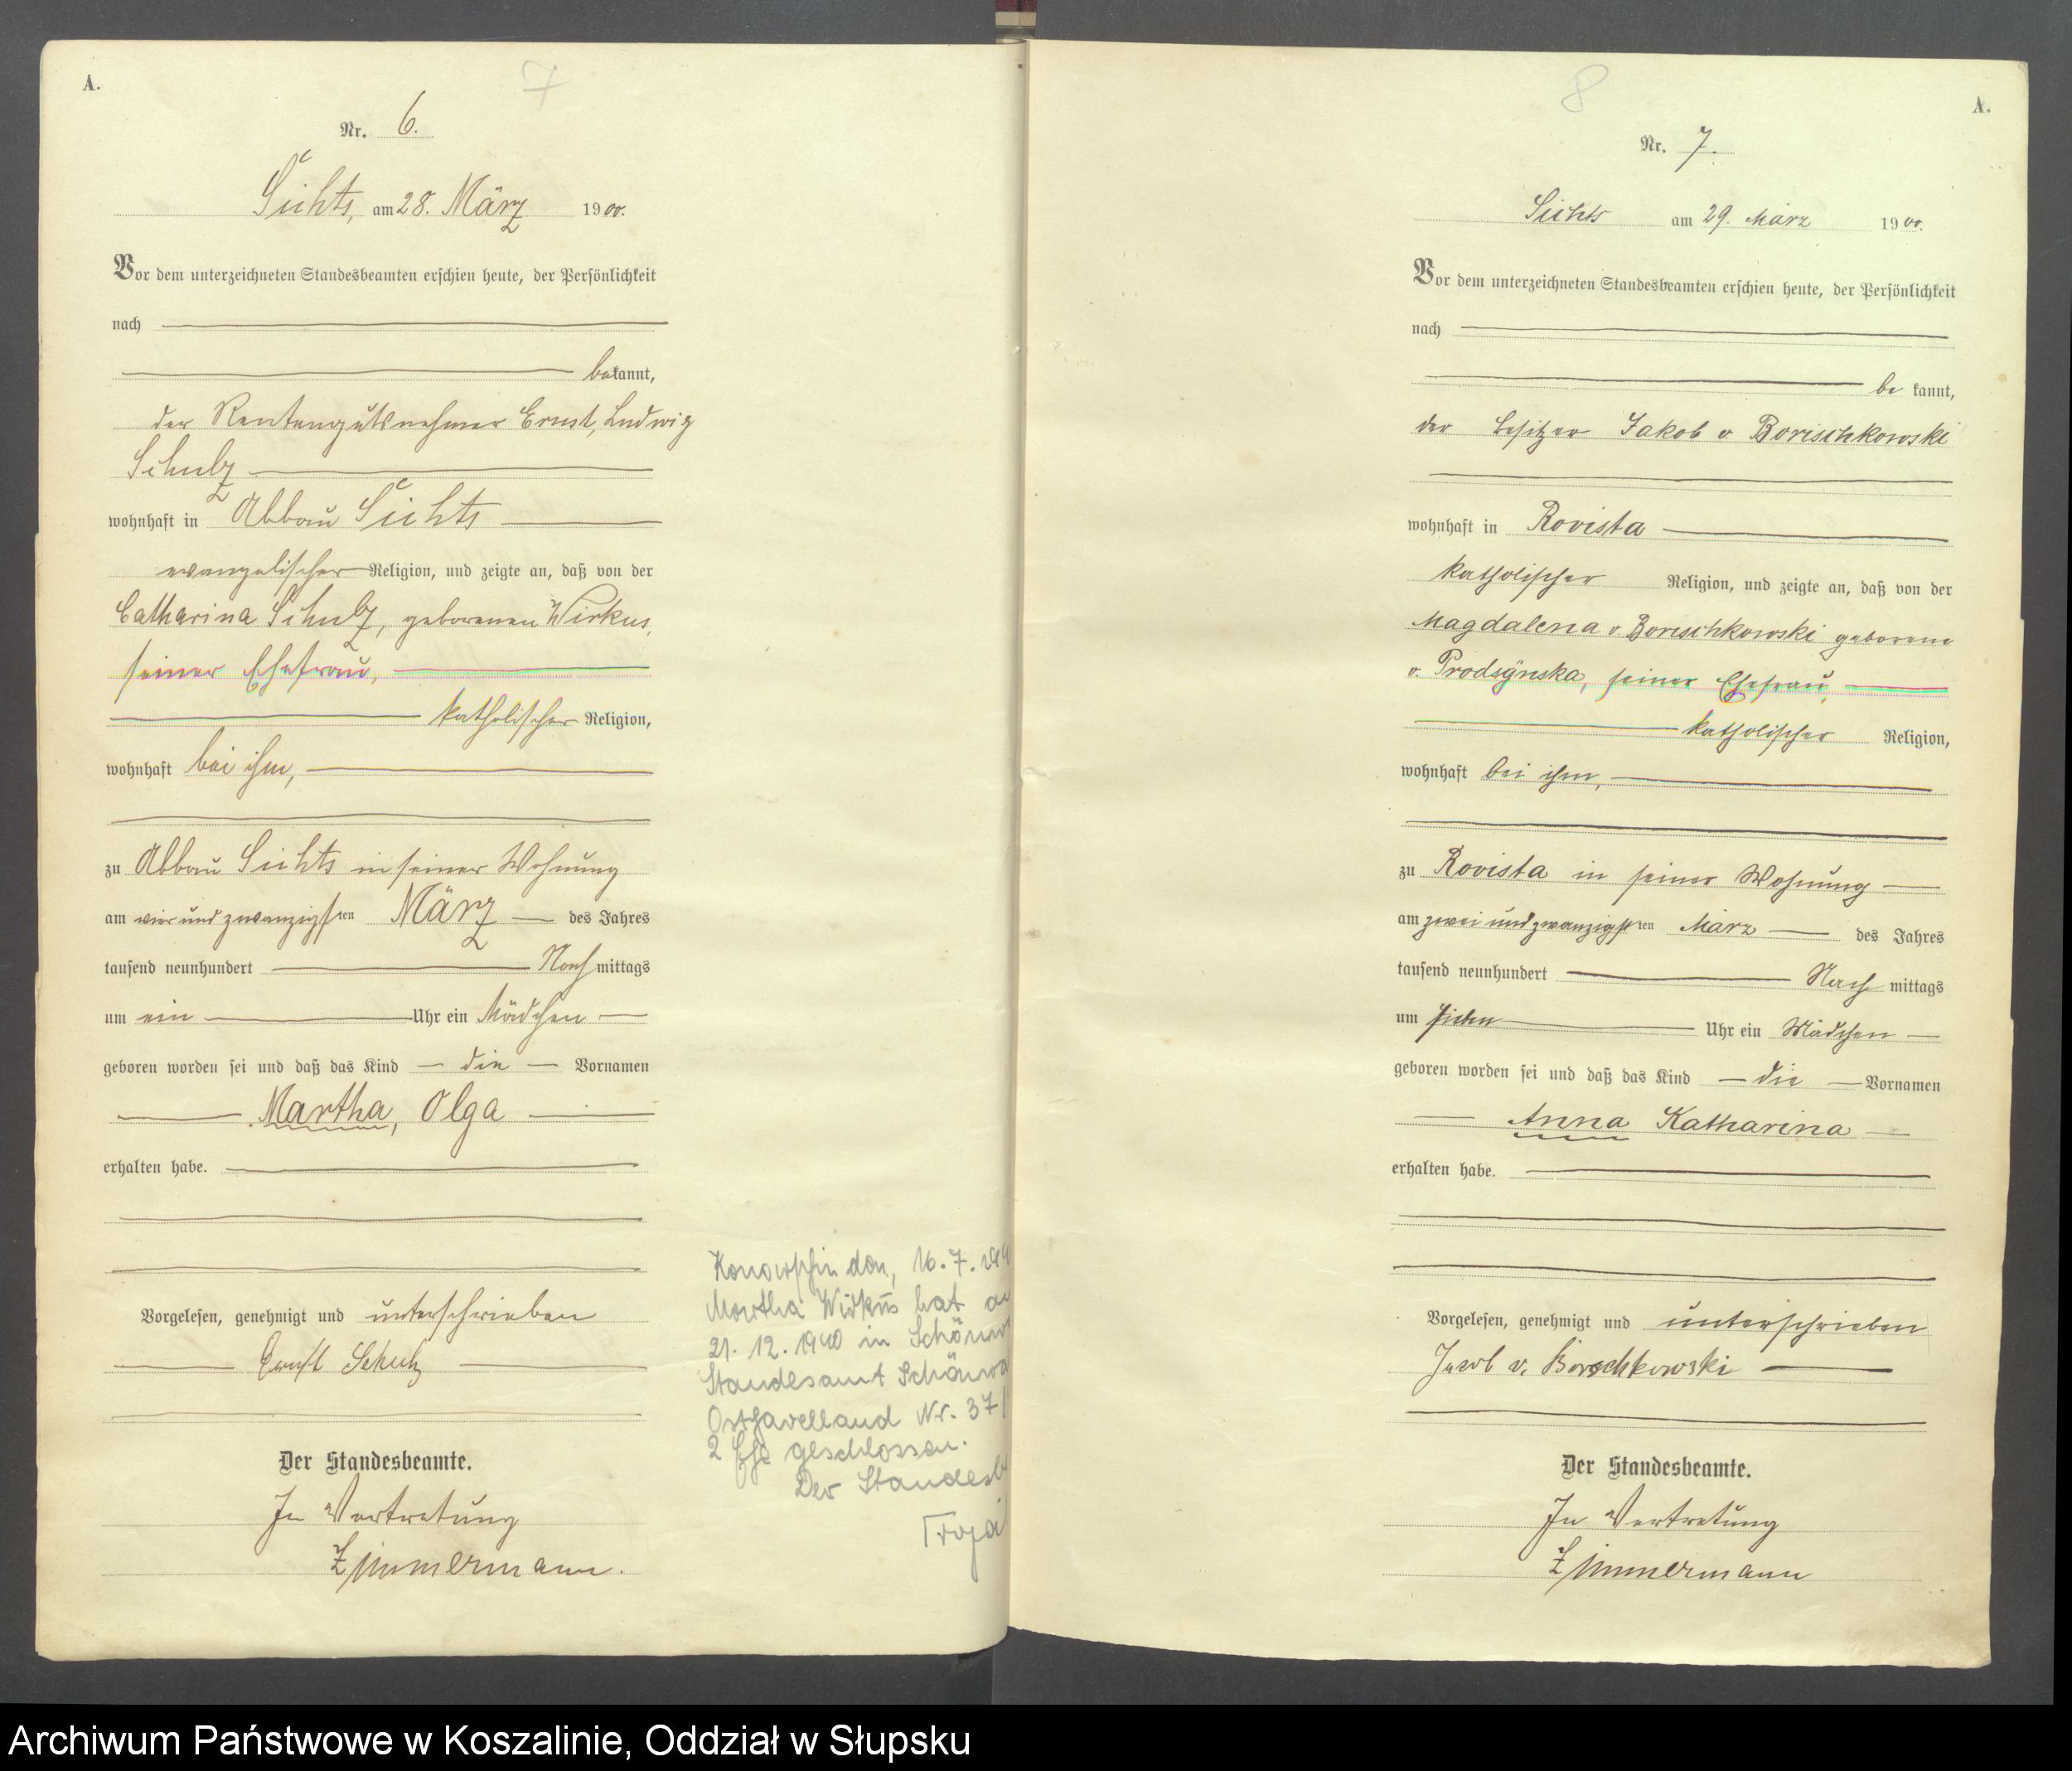 A.
7
Nr. 6.
Sichts, am 28. März 1900.
Vor dem unterzeichneten Standesbeamten erschien heute, der Persönlichkeit
nach
bekannt,
der Rentengutsnehmer Ernst, Ludwig
Schulz
wohnhaft in Abbau Sichts
evangelischer Religion, und zeigte an, daß von der
Catharina Schulz, geborenen Wirkus,
seiner Ehefrau,
katholischer Religion,
wohnhaft bei ihm,
zu Abbau Sichts in seiner Wohnung
am vier und zwanzigsten März des Jahres
tausend neunhundert Nachmittags
um ein Uhr ein Mädchen
geboren worden sei und daß das Kind die Vornamen
Martha, Olga
erhalten habe.
Vorgelesen, genehmigt und unterschrieben
Ernst Schulz
Der Standesbeamte.
In Vertretung
Zimmermann.
den, 16. 7.
Martha Wirkus hat
21. 12. 1940 in
Standesamt
Osthavelland Nr. 37
2 Ehe geschlossen.
Der
8
A.
Nr. 7.
Sichts am 29. März 1900.
Vor dem unterzeichneten Standesbeamten erschien heute, der Persönlichkeit
nach
be kannt,
der Besitzer Jakob v Borischkowski
wohnhaft in Rovista
katholischer Religion, und zeigte an, daß von der
Magdalena v. Borischkowski geborene
v. Prodsÿnska, seiner Ehefrau,
katholischer Religion,
wohnhaft bei ihm,
zu Rovista in seiner Wohnung
am zwei und zwanzigsten März des Jahres
tausend neunhundert Nach mittags
um sieben Uhr ein Mädchen
geboren worden sei und daß das Kind die Vornamen
Anna Katharina
erhalten habe.
Vorgelesen, genehmigt und unterschrieben
Jacob v. Borschkowski
Der Standesbeamte.
In Vertretung
Zimmermann
Archiwum Państwowe w Koszalinie, Oddział w Słupsku